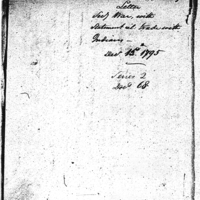 Letter
Secy War, with
Statement rel. Trade with
Indians —
Decr 15th 1795
Series 2
Doc 68